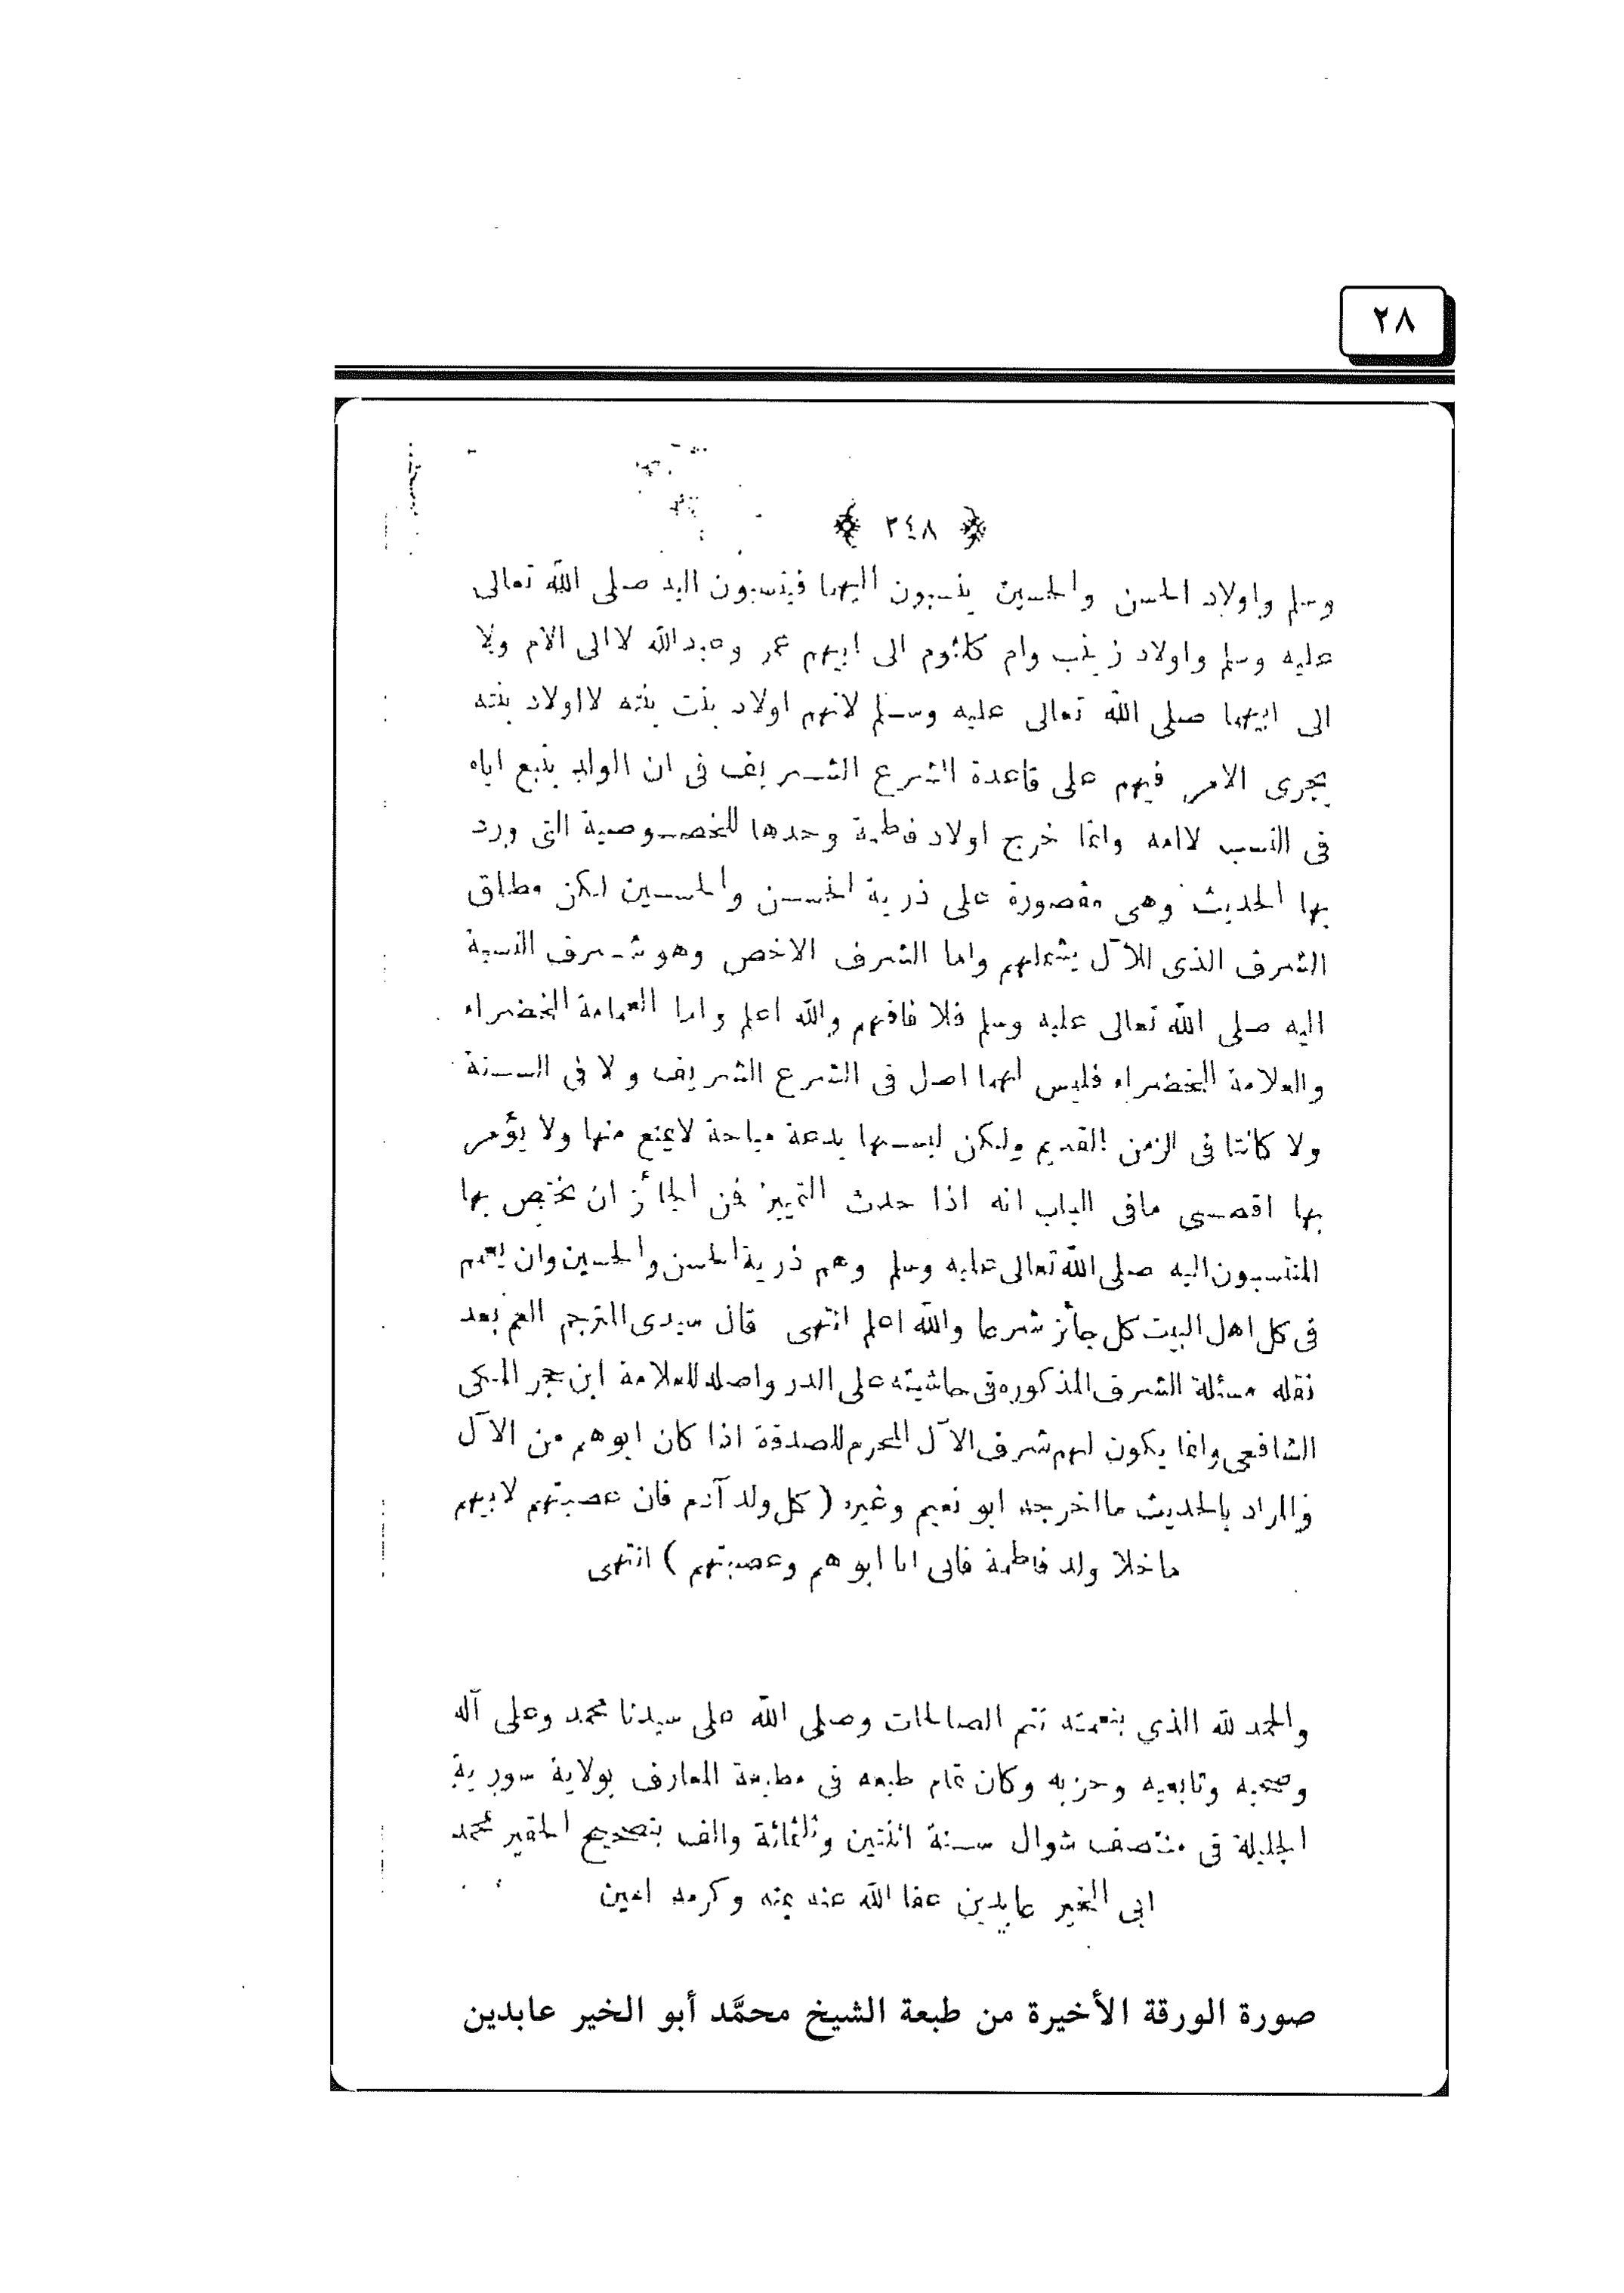 ٢٨
﴿ ٢٤٨ ﴾
وسلم واولاد الحسن والحسين ينسبون اليهما فينسبون اليه صلى الله تعالى
عليه وسلم واولاد زينب وام كلثوم الى ابيهم عمر وعبدالله لاالى الام ولا
الى ابيهما صلى الله تعالى عليه وسلم لانهم اولاد بنت بنته لااولاد بنته
يجرى الامر فيهم على قاعدة الشرع الشريف فى ان الولد يتبع اباه
فى النسب لاامه وانما خرج اولاد فاطمة وحدها للخصوصية التى ورد
بها الحديث وهى مقصورة على ذرية الحسن والحسين لكن مطلق
الشرف الذى للآل يشملهم واما الشرف الاخص وهو شرف النسبة
اليه صلى الله تعالى عليه وسلم فلا فافهم والله اعلم واما العمامة الخضراء
والعلامة الخضراء فليس لهما اصل فى الشرع الشريف ولا فى السنة
ولا كانتا فى الزمن القديم وليكن لبسها بدعة مباحة لايمنع منها ولا يؤمر
بها اقصى مافى الباب انه اذا حدث التمييز فمن الجائز ان يختص بها
المنتسبون اليه صلى الله تعالى عليه وسلم وهم ذرية الحسن والحسين وان يعمم
فى كل اهل البيت كل جائز شرعا والله اعلم انتهى قال سيدى المترجم العم بعد
نقله مسئلة الشرف المذكوره فى حاشيته على الدر واصله للعلامة ابن حجر المكى
الشافعى وانما يكون لهم شرف الآل المحرم للصدقة اذا كان ابوهم من الآل
والمراد بالحديث مااخرجه ابو نعيم وغيره ( كل ولد آدم فان عصبتهم لابيهم
ماخلا ولد فاطمة فانى انا ابوهم وعصبتهم ) انتهى
والحمد لله الذي بنعمته تتم الصالحات وصلى الله على سيدنا محمد وعلى آله
وصحبه وتابعيه وحزبه وكان تمام طبعه فى مطبعة المعارف بولاية سورية
الجليلة فى منتصف شوال سنة اثنتين وثلثمائة والف بتصحيح الحقير محمد
ابى الخير عابدين عفا الله عنه بمنه وكرمه امين
صورة الورقة الأخيرة من طبعة الشيخ محمَّد أبو الخير عابدين